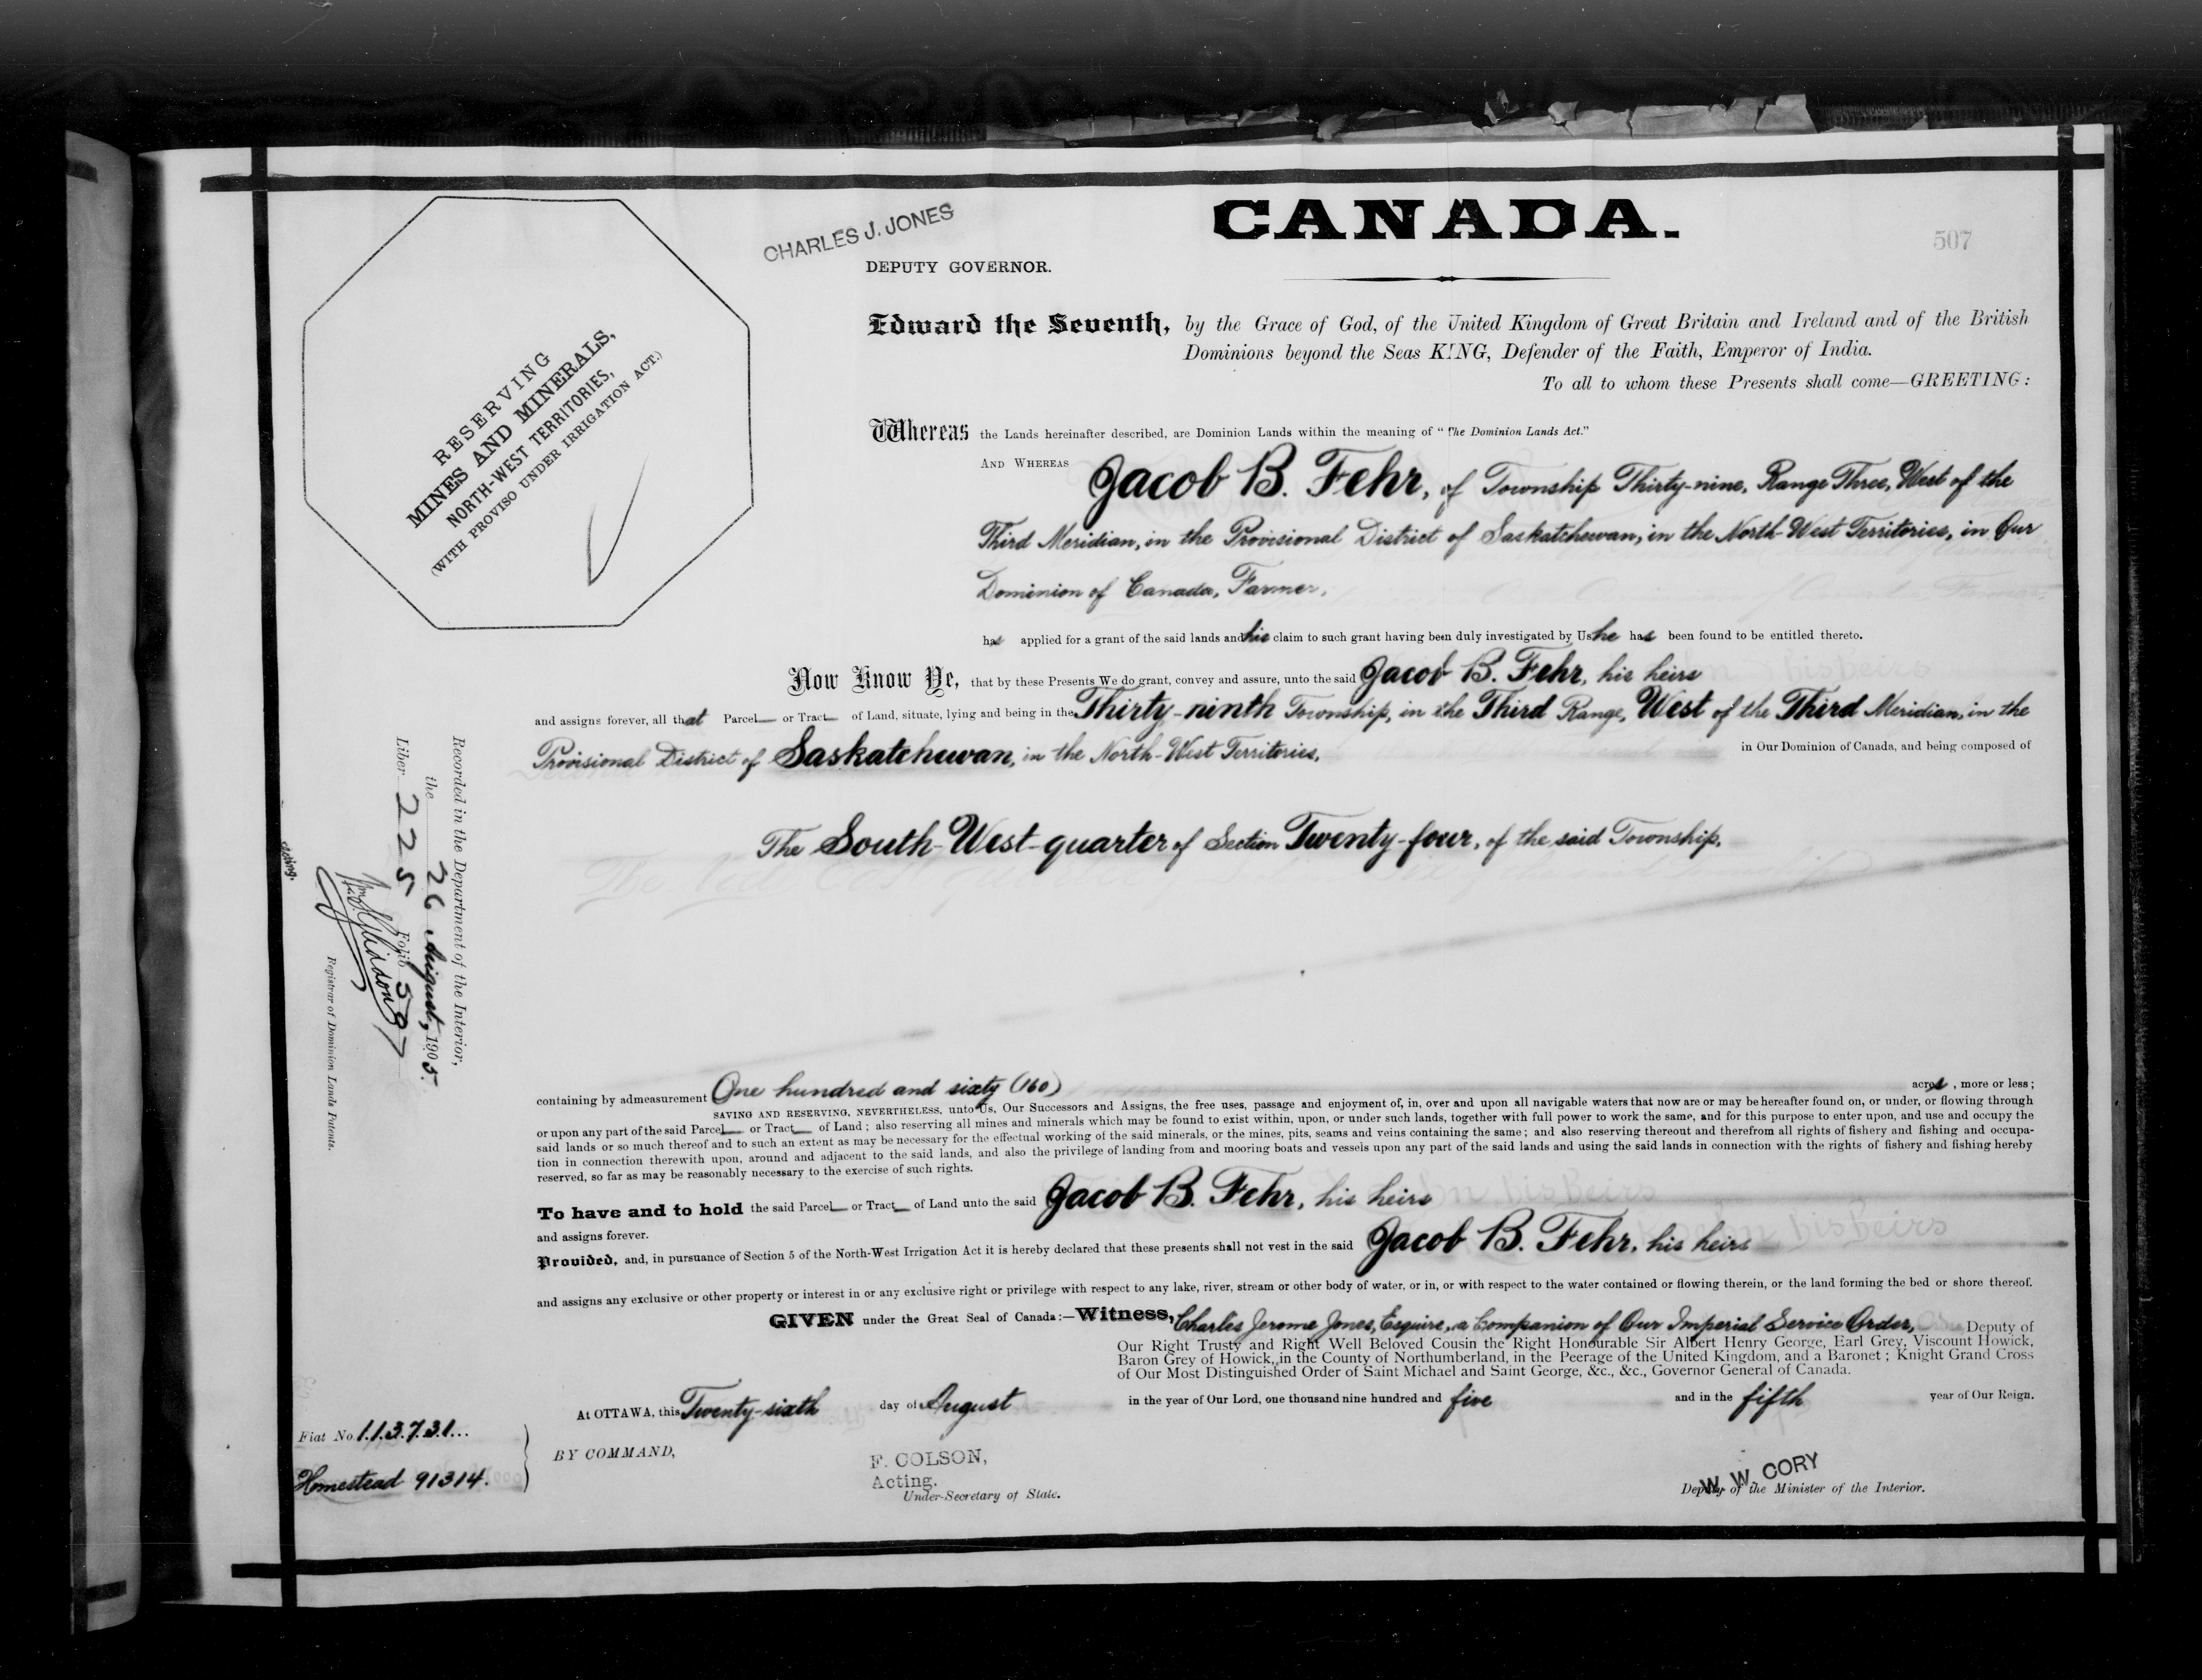 CANADA.
507
CHARLES J. JONES
DEPUTY GOVERNOR.
RESERVING
MINES AND MINERALS,
NORTH-WEST TERRITORIES,
(WITH PROVISO UNDER IRRIGATION ACT.)
Edward the Seventh, by the Grace of God, of the United Kingdom of Great Britain and Ireland and of the British
Dominions beyond the Seas KING, Defender of the Faith, Emperor of India.
To all to whom these Presents shall come—GREETING:
Whereas the Lands hereinafter described, are Dominion Lands within the meaning of "The Dominion Lands Act."
AND WHEREAS Jacob B. Fehr, of Township Thirty-nine, Range Three, West of the
Third Meridian, in the Provisional District of Saskatchewan, in the North-West Territories, in Our
Dominion of Canada, Farmer,
has applied for a grant of the said lands and his claim to such grant having been duly investigated by Us he has been found to be entitled thereto.
Now Know Ye, that by these Presents We do grant, convey and assure, unto the said Jacob B. Fehr, his heirs
and assigns forever, all that Parcel or Tract of Land, situate, lying and being in the Thirty-ninth Township, in the Third Range, West of the Third Meridian, in the
Provisional District of Saskatchewan, in the North-West Territories, in Our Dominion of Canada, and being composed of
The South-West-quarter of Section Twenty-four, of the said Township,
containing by admeasurement One hundred and sixty (160) acres, more or less;
SAVING AND RESERVING, NEVERTHELESS, unto Us, Our Successors and Assigns, the free uses, passage and enjoyment of, in, over and upon all navigable waters that now are or may be hereafter found on, or under, or flowing through
or upon any part of the said Parcel or Tract of Land; also reserving all mines and minerals which may be found to exist within, upon, or under such lands, together with full power to work the same, and for this purpose to enter upon, and use and occupy the
said lands or so much thereof and to such an extent as may be necessary for the effectual working of the said minerals, or the mines, pits, seams and veins containing the same; and also reserving thereout and therefrom all rights of fishery and fishing and occupa-
tion in connection therewith upon, around and adjacent to the said lands, and also the privilege of landing from and mooring boats and vessels upon any part of the said lands and using the said lands in connection with the rights of fishery and fishing hereby
reserved, so far as may be reasonably necessary to the exercise of such rights.
To have and to hold the said Parcel or Tract of Land unto the said Jacob B. Fehr, his heirs
and assigns forever.
Provided, and, in pursuance of Section 5 of the North-West Irrigation Act it is hereby declared that these presents shall not vest in the said Jacob B. Fehr, his heirs
and assigns any exclusive or other property or interest in or any exclusive right or privilege with respect to any lake, river, stream or other body of water, or in, or with respect to the water contained or flowing therein, or the land forming the bed or shore thereof.
GIVEN under the Great Seal of Canada:—Witness, Charles Jerome Jones, Esquire, a Companion of Our Imperial Service Order, Deputy of
Our Right Trusty and Right Well Beloved Cousin the Right Honourable Sir Albert Henry George, Earl Grey, Viscount Howick,
Baron Grey of Howick, in the County of Northumberland, in the Peerage of the United Kingdom, and a Baronet; Knight Grand Cross
of Our Most Distinguished Order of Saint Michael and Saint George, &c., &c., Governor General of Canada.
At OTTAWA, this Twenty-sixth day of August in the year of Our Lord, one thousand nine hundred and five and in the fifth year of Our Reign.
BY COMMAND,
F. COLSON,
Acting.
Under-Secretary of State.
W. W. CORY
Deputy of the Minister of the Interior.
Fiat No. 113731...
Homestead 91314.
Recorded in the Department of the Interior,
the 26 August, 1905.
Liber 225 Folio 507
Registrar of Dominion Lands Patents.
Acting.